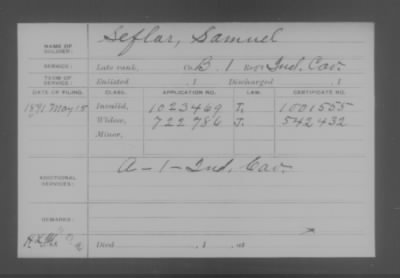 NAME OF SOLDIER: Seflar, Samuel
SERVICE: Late rank, Co. B. 1 Reg't Ind. Cav.
TERM OF SERVICE: Enlisted , 1 Discharged , 1
DATE OF FILING. CLASS. APPLICATION NO. LAW. CERTIFICATE NO.
1891 May 18 Invalid, 1023469 J. 1001555
Widow, 722786 J. 542432
Minor,
ADDITIONAL SERVICES: A-1-Ind. Cav.
REMARKS:
Died , 1 , at